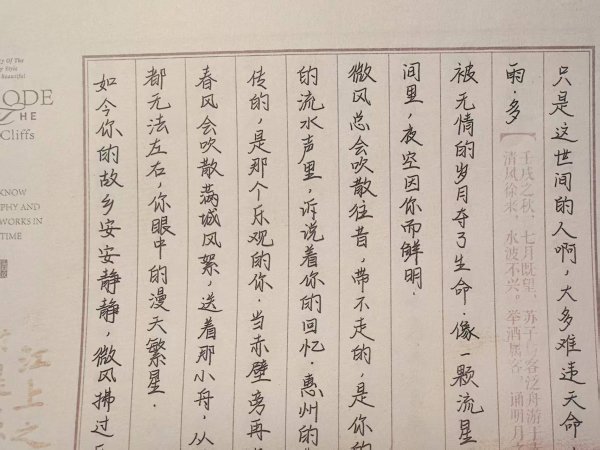 只是这世间的人啊，大多难违天命，
雨·多
【壬戌之秋，七月既望，苏子与客泛舟游于
清风徐来，水波不兴。举酒属客，诵明月之
被无情的岁月夺了生命.像一颗流星
间里，夜空因你而鲜明.
微风总会吹散往昔，带不走的，是你的
的流水声里，诉说着你的回忆.惠州的
传的，是那个乐观的你.当赤壁旁再
春风会吹散满城风絮，送着那小舟，从
都无法左右，你眼中的漫天繁星.
如今你的故乡安安静静，微风拂过
Of The
Style
Beautiful
ODE
HE
Cliffs
KNOW
PHY AND
WORKS IN
TIME
江上之